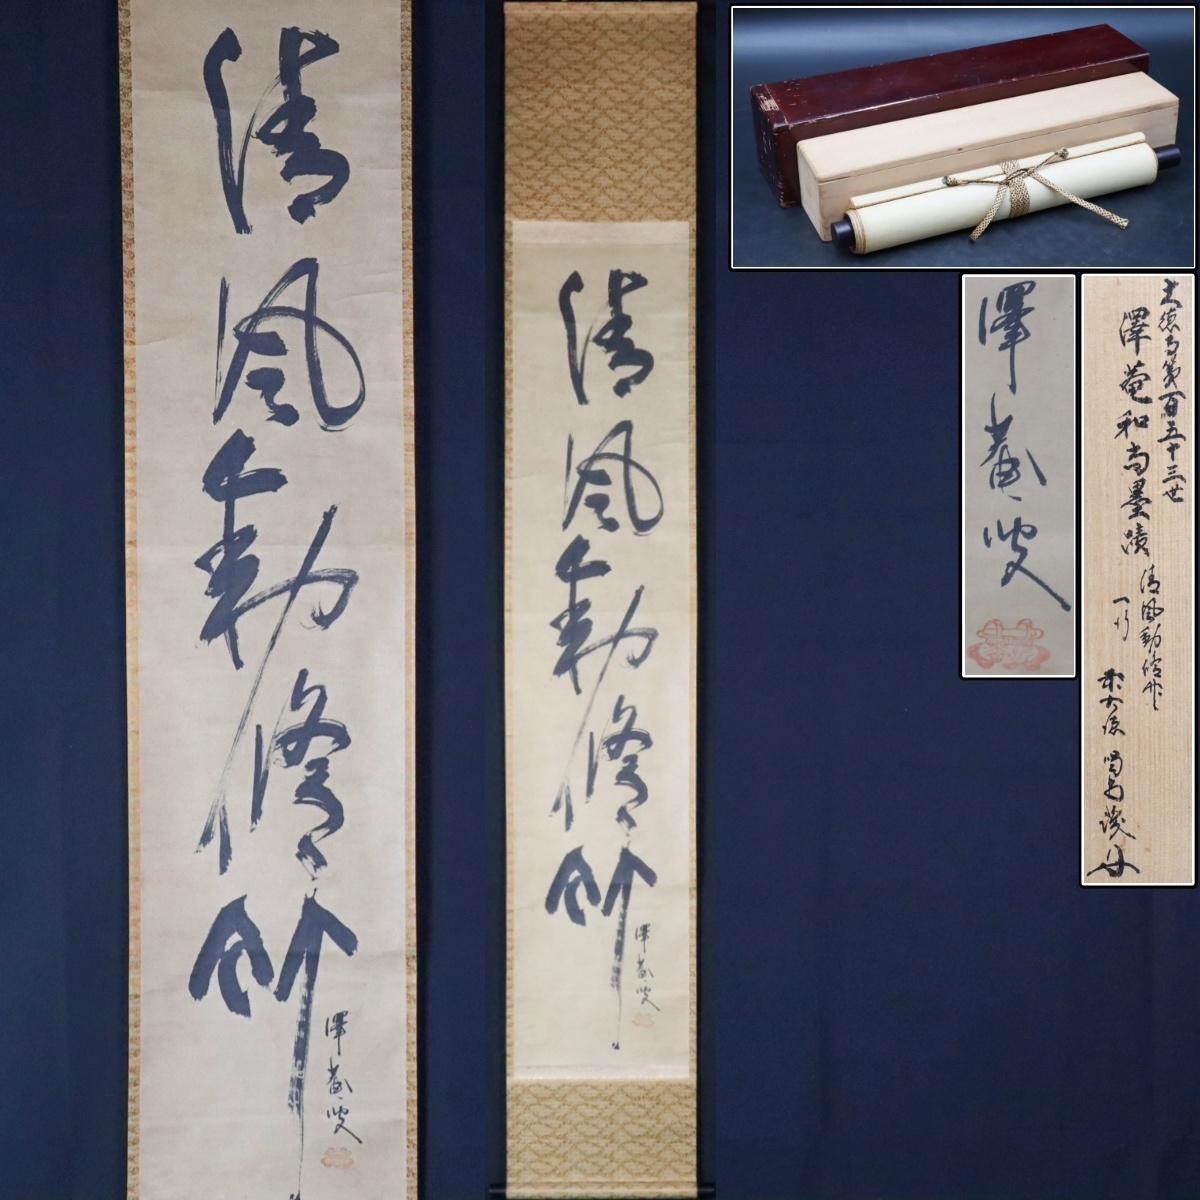 清風動脩竹
澤菴叟
清風動脩竹
澤菴叟
澤菴叟
大徳寺第百五十三世
澤菴和尚墨蹟
清風動脩竹
一行